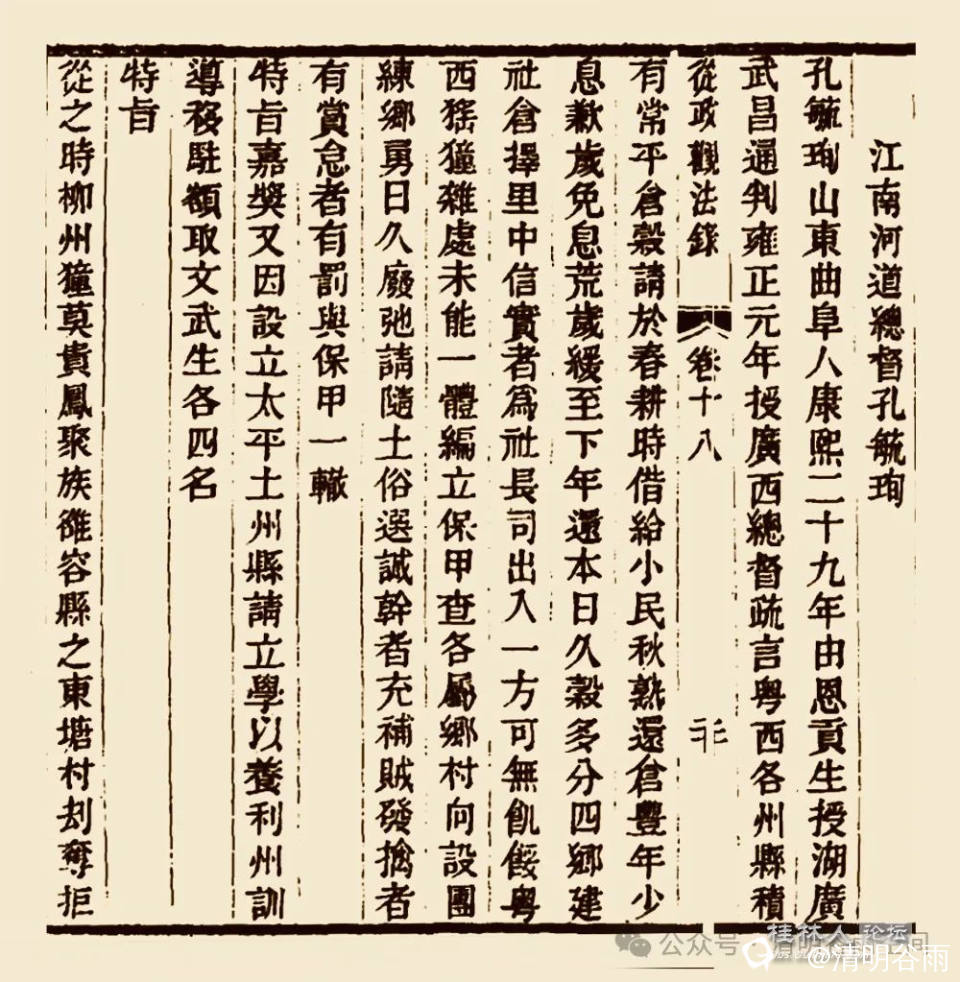 江南河道總督孔毓珣
孔毓珣山東曲阜人康熙二十九年由恩貢生授湖廣
武昌通判雍正元年授廣西總督疏言粵西各州縣積
從政觀法錄 卷十八
有常平倉穀請於春耕時借給小民秋熟還倉豐年少
息歉歲免息荒歲緩至下年還本日久穀多分四鄉建
社倉擇里中信實者爲社長司出入一方可無飢餒粵
西猺獞雜處未能一體編立保甲查各屬鄉村向設團
練鄉勇日久廢弛請隨土俗選誠幹者充補賊發擒者
有賞怠者有罰與保甲一轍
特旨嘉獎又因設立太平土州縣請立學以養利州訓
導移駐額取文武生各四名
特旨
從之時柳州獞莫貴鳳聚族雒容縣之東塘村刦奪拒
公众号
桂林人论坛
@清明谷雨